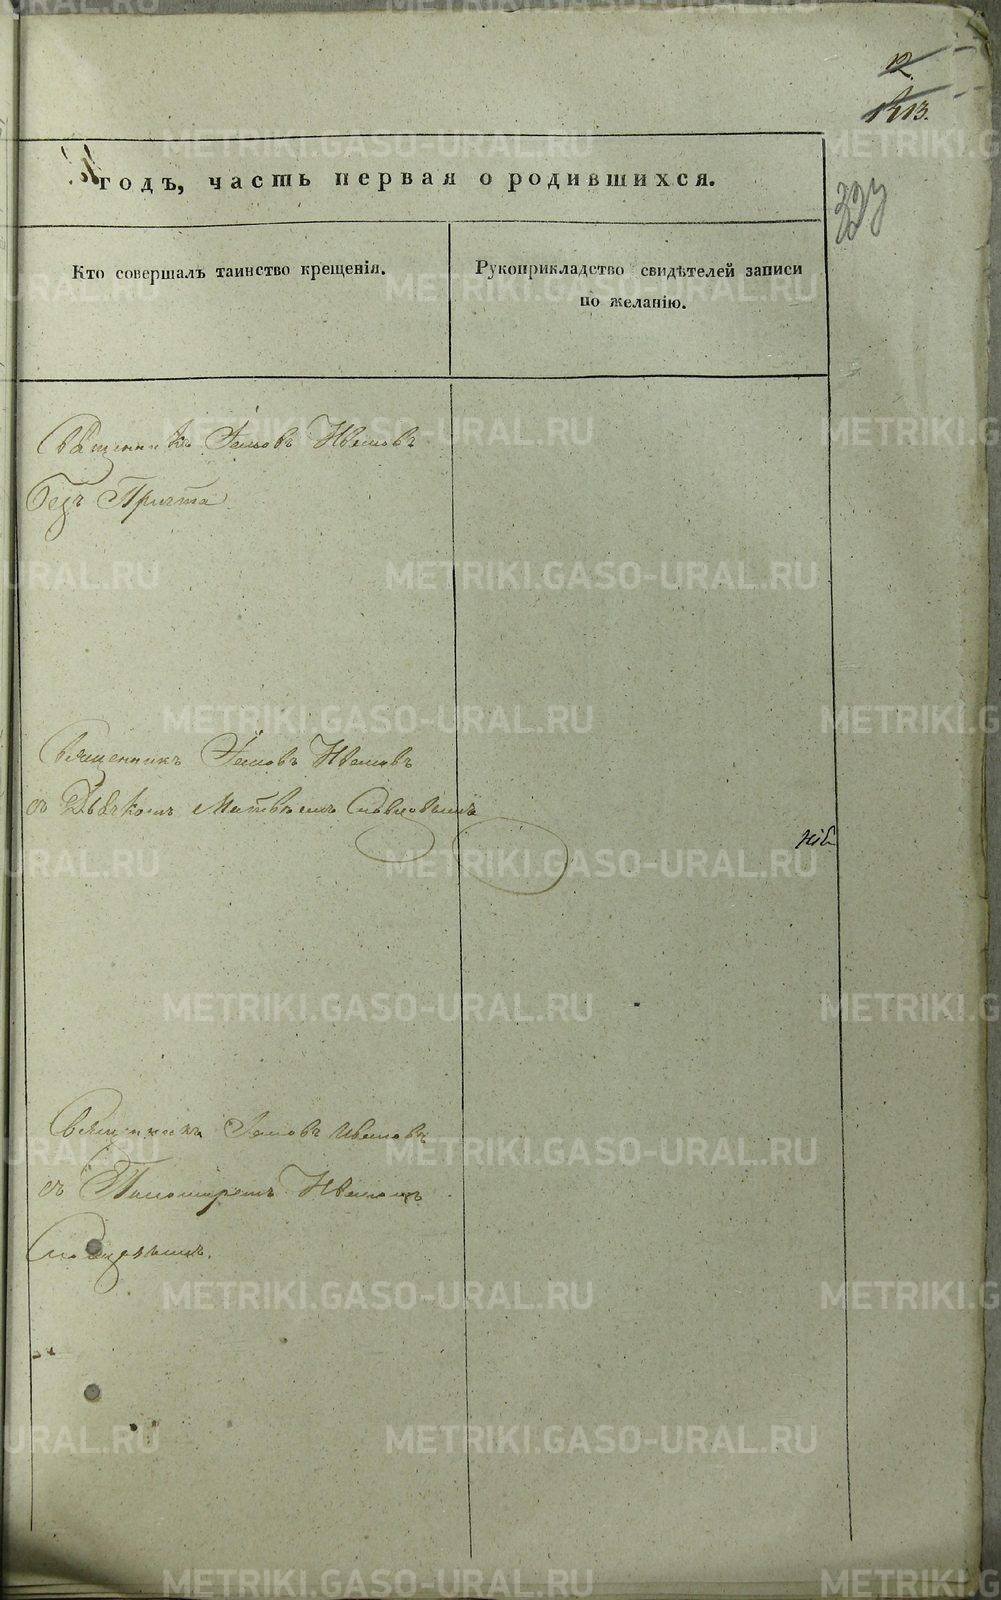 12
13.
годъ, часть первая о родившихся.
327
Кто совершалъ таинство крещенія.
Рукоприкладство свидѣтелей записи
по желанію.
Священникъ Іаковъ Ивановъ
безъ Причта
Священникъ Іаковъ Ивановъ
съ Дьячкомъ Матвѣемъ
Священникъ Іаковъ Ивановъ
съ Пономаремъ Иваномъ
METRIKI.GASO-URAL.RU